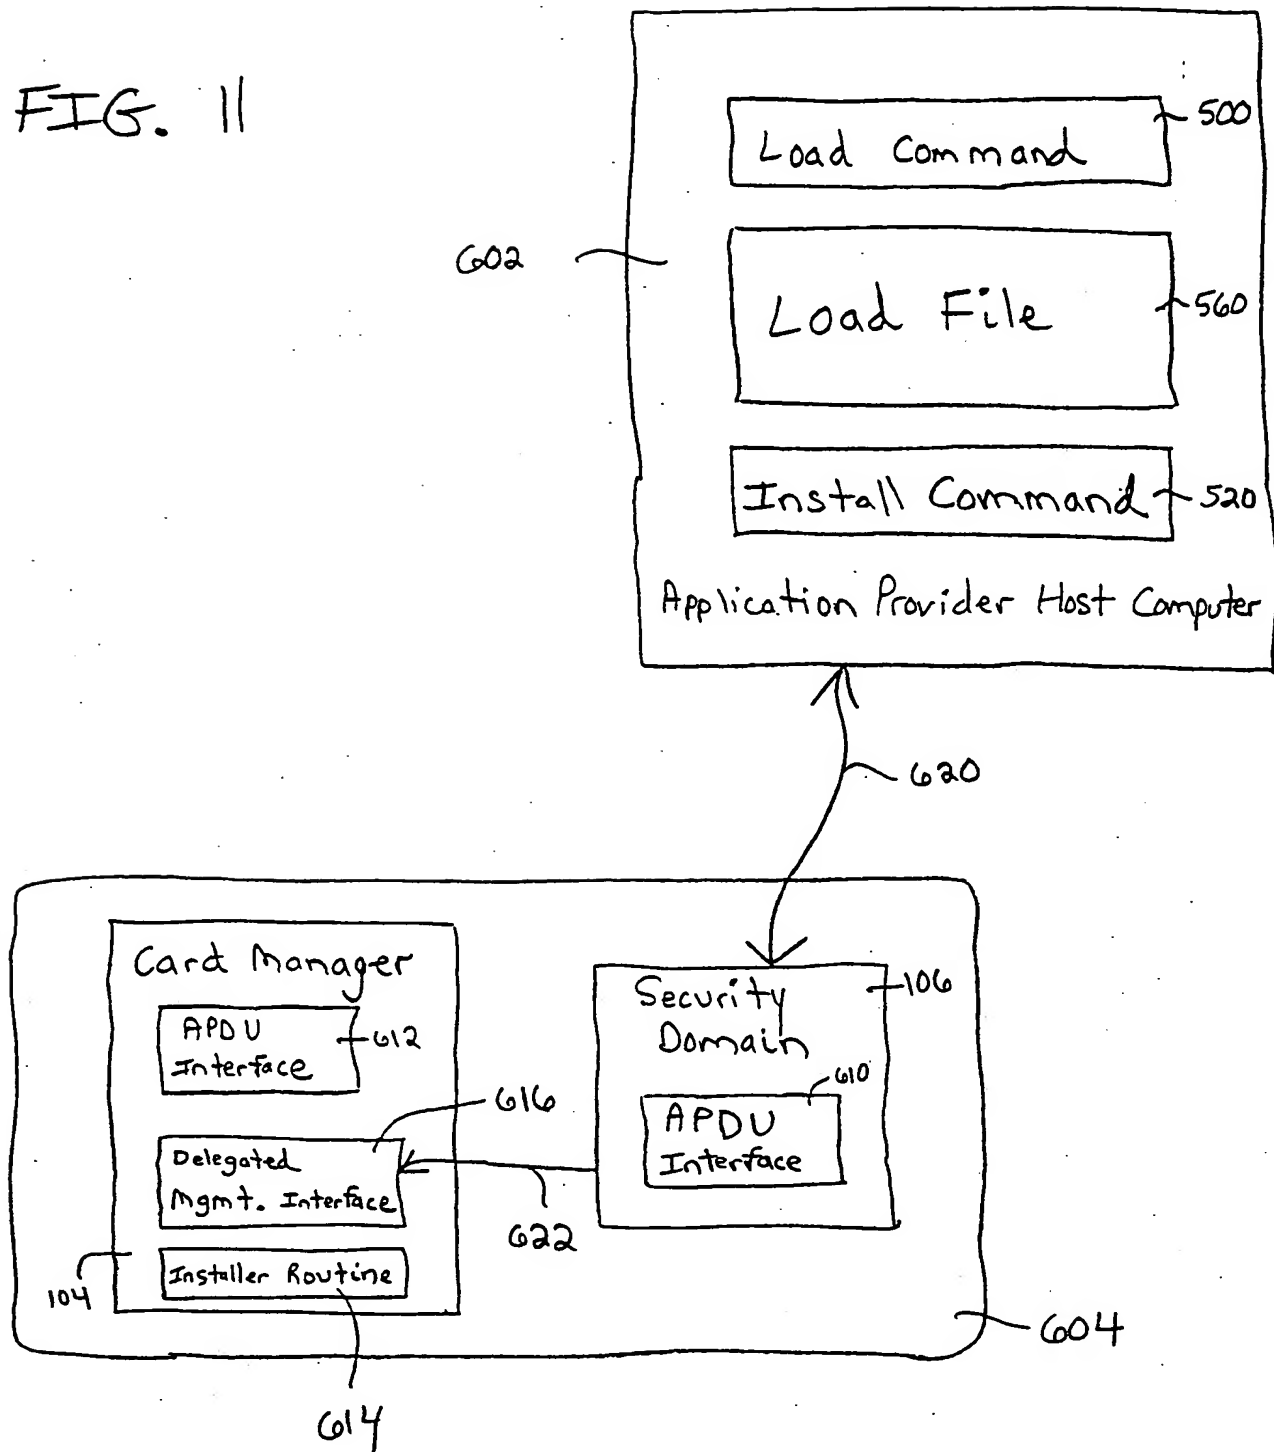 FIG. 11
Load Command
500
602
Load File
560
Install Command
520
Application Provider Host Computer
620
Card Manager
APDU
Interface
612
616
Delegated
Mgmt. Interface
622
Installer Routine
104
614
Security
Domain
106
610
APDU
Interface
604